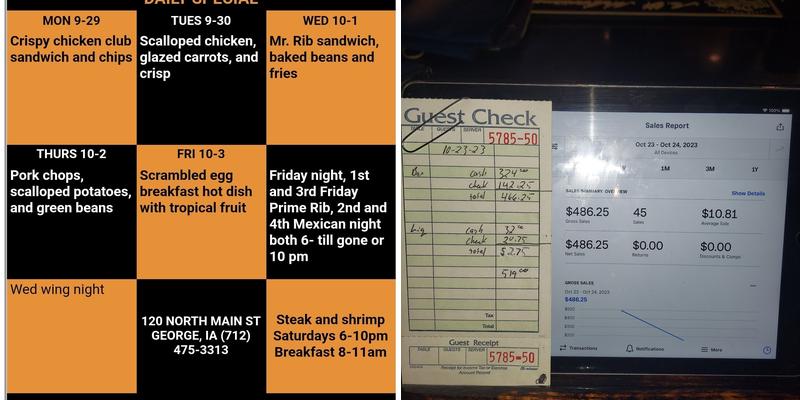 DAILY SPECIAL
MON 9-29
Crispy chicken club
sandwich and chips
TUES 9-30
Scalloped chicken,
glazed carrots, and
crisp
WED 10-1
Mr. Rib sandwich,
baked beans and
fries
THURS 10-2
Pork chops,
scalloped potatoes,
and green beans
FRI 10-3
Scrambled egg
breakfast hot dish
with tropical fruit
Friday night, 1st
and 3rd Friday
Prime Rib, 2nd and
4th Mexican night
both 6- till gone or
10 pm
Wed wing night
120 NORTH MAIN ST
GEORGE, IA (712)
475-3313
Steak and shrimp
Saturdays 6-10pm
Breakfast 8-11am
Guest Check
TABLE GUESTS SERVER
5785-50
10-23-23
cash 324.00
check 142.25
total 466.25
cash 32.00
check 20.75
total 52.75
519.00
Tax
Total
Guest Receipt
TABLE GUESTS SERVER
5785-50
Receipt for Income Tax or Expense
Account Record
100%
Sales Report
Oct 23 - Oct 24, 2023
All Devices
1M 3M 1Y
SALES SUMMARY OVERVIEW
Show Details
$486.25 45 $10.81
Gross Sales Average Sale
$486.25 $0.00 $0.00
Net Sales Returns Discounts & Comps
GROSS SALES
Oct 23 - Oct 24, 2023
$486.25
$800
$600
$400
Transactions Notifications More